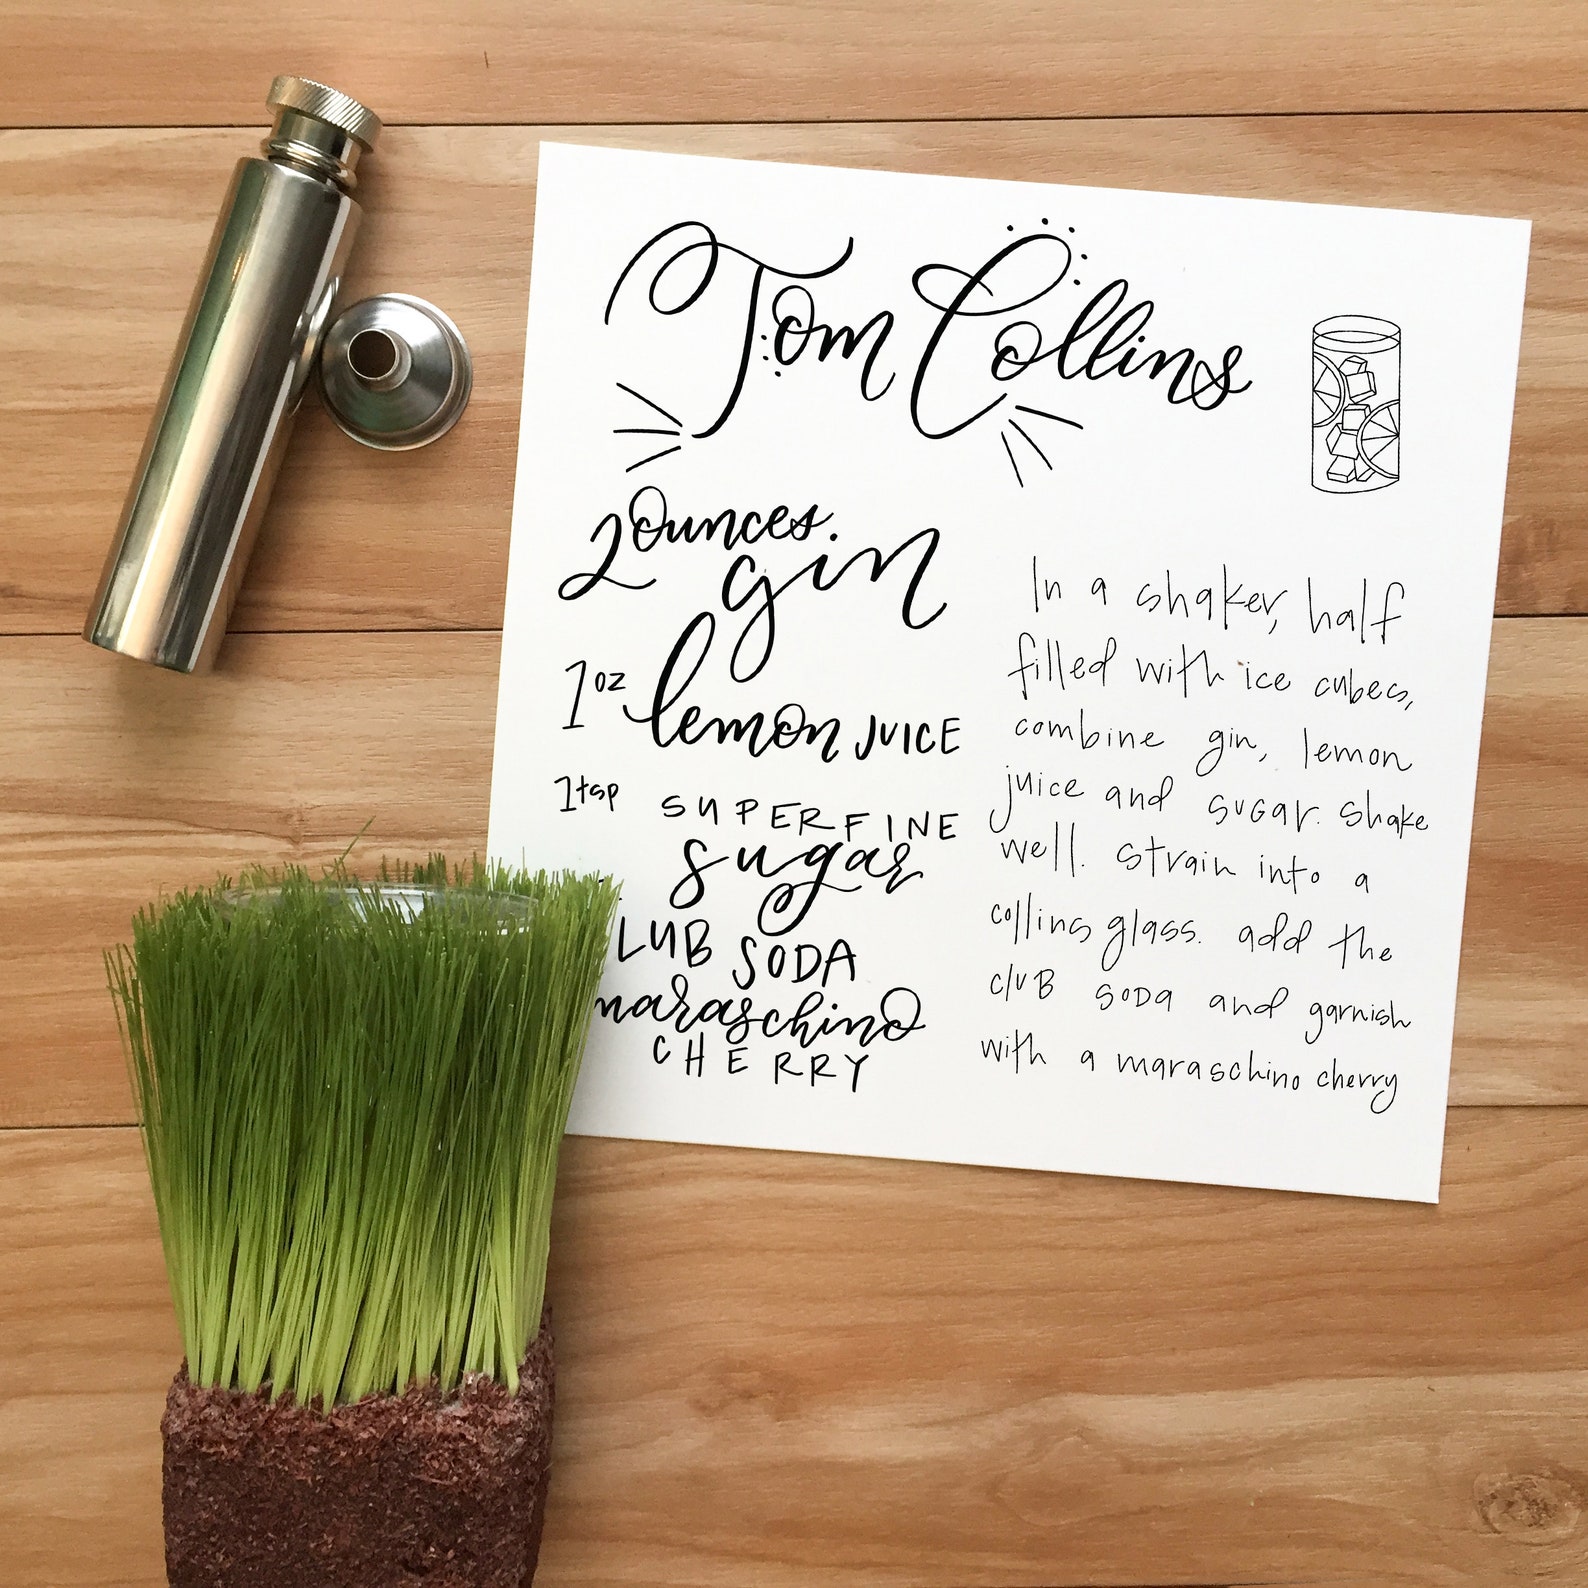 Tom Collins
2 ounces
gin
1 oz lemon JUICE
1 tsp SUPERFINE
sugar
LUB SODA
maraschino
CHERRY
In a shaker, half
filled with ice cubes,
combine gin, lemon
juice and sugar. shake
well. strain into a
collins glass. add the
club soda and garnish
with a maraschino cherry